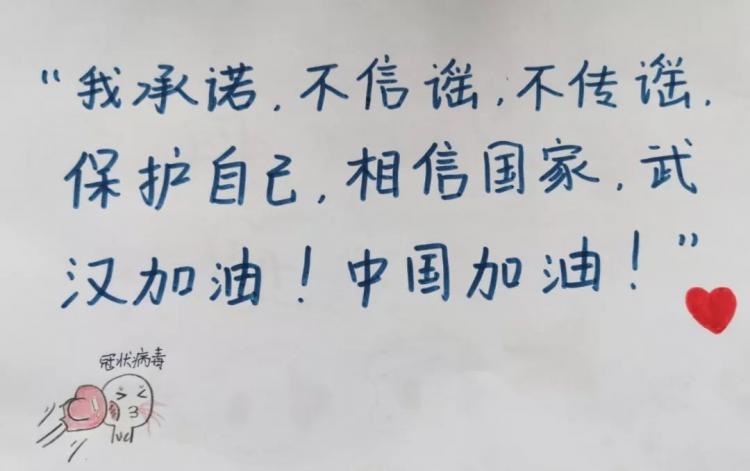 “我承诺，不信谣，不传谣，
保护自己，相信国家，武
汉加油！中国加油！”
冠状病毒